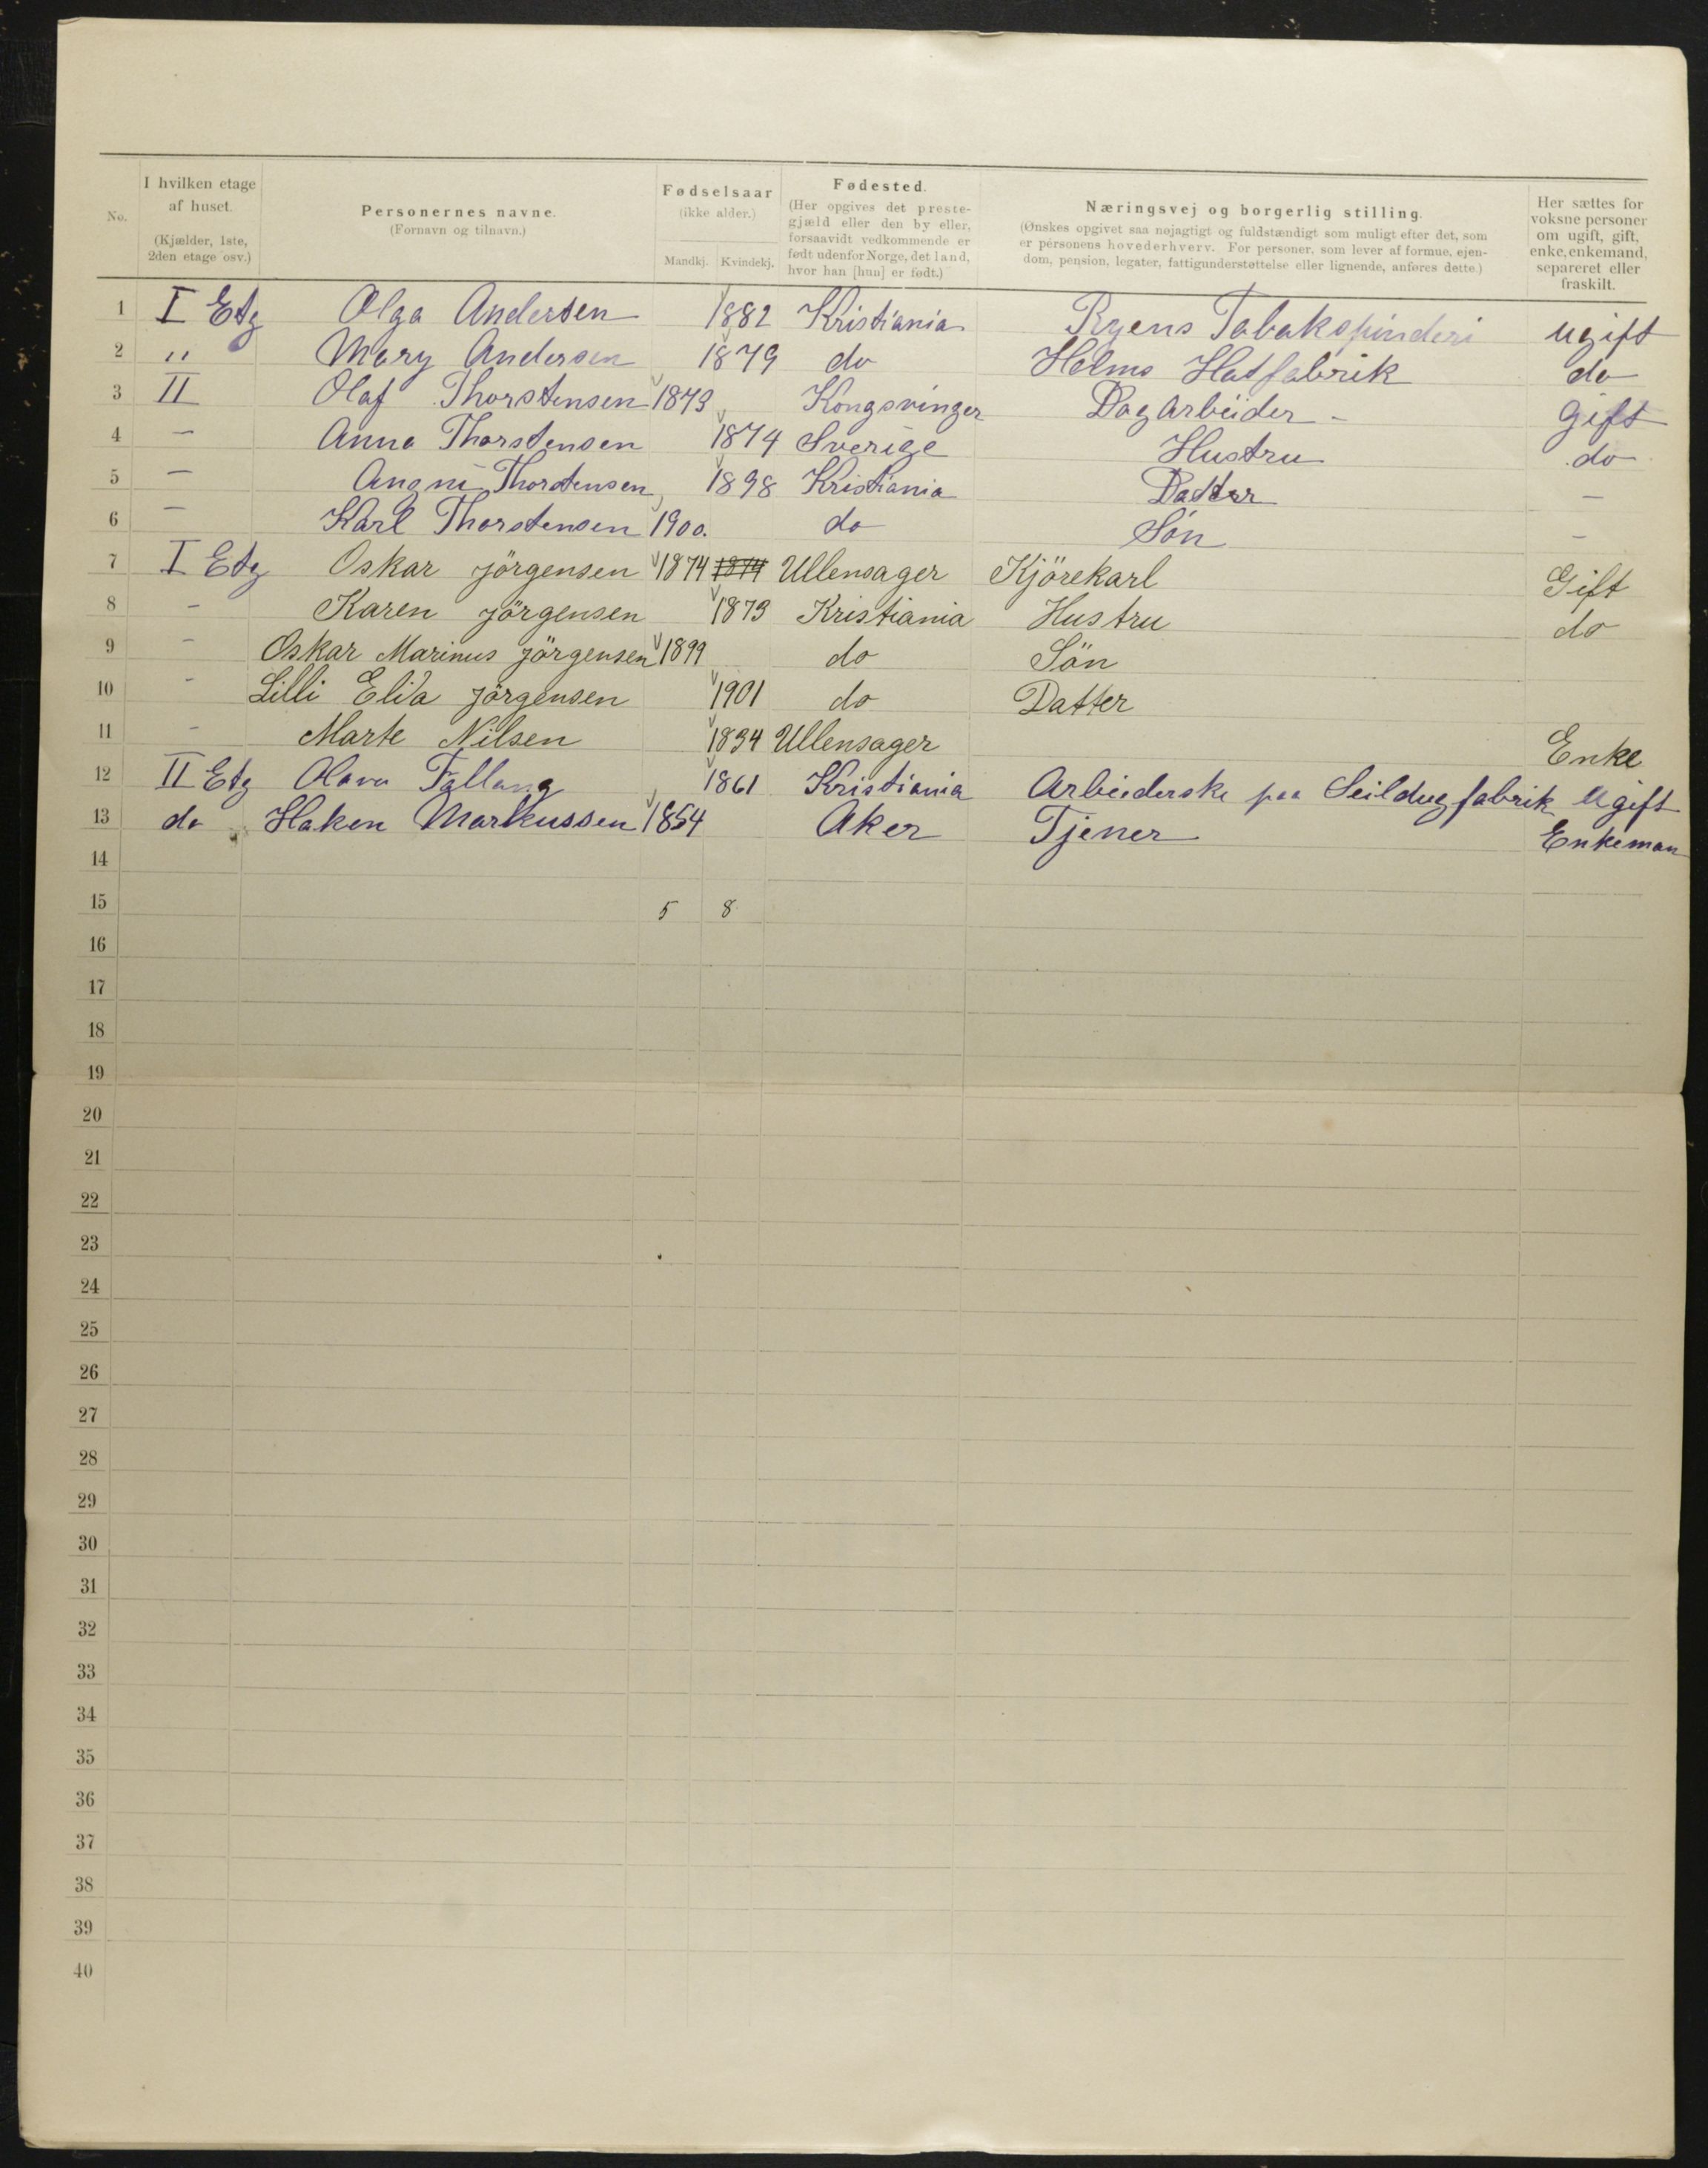 No.
I hvilken etage af huset. (Kjælder, 1ste, 2den etage osv.)
Personernes navne. (Fornavn og tilnavn.)
Fødselsaar (ikke alder.) Mandkj. Kvindekj.
Fødested. (Her opgives det prestegjæld eller den by eller, forsaavidt vedkommende er født udenfor Norge, det land, hvor han [hun] er født.)
Næringsvej og borgerlig stilling. (Ønskes opgivet saa nøjagtigt og fuldstændigt som muligt efter det, som er personens hovederhverv. For personer, som lever af formue, ejendom, pension, legater, fattigunderstøttelse eller lignende, anføres dette.)
Her sættes for voksne personer om ugift, gift, enke, enkemand, separeret eller fraskilt.
1 I Etg Olga Andersen 1882 Kristiania Ryens Tobakspinderi ugift
2 " Mary Andersen 1879 do Holms Hatfabrik do
3 II Olaf Thorstensen 1873 Kongsvinger Dagarbeider - Gift
4 — Anna Thorstensen 1874 Sverige Hustru do
5 — Thorstensen 1898 Kristiania Datter —
6 — Karl Thorstensen 1900. do Sön —
7 I Etg Oskar Jörgensen 1874 1874 Ullensager Kjörekarl Gift
8 - Karen Jörgensen 1873 Kristiania Hustru do
9 - Oskar Marinus Jörgensen 1899 do Sön
10 - Lilli Elida Jörgensen 1901 do Datter
11 - Marte Nilsen 1834 Ullensager Enke
12 II Etg Olava Fallang 1861 Kristiania Arbeiderske paa Seildugfabrik Ugift
13 do Haken Markussen 1854 Aker Tjener Enkeman
14
15 5 8
16
17
18
19
20
21
22
23
24
25
26
27
28
29
30
31
32
33
34
35
36
37
38
39
40